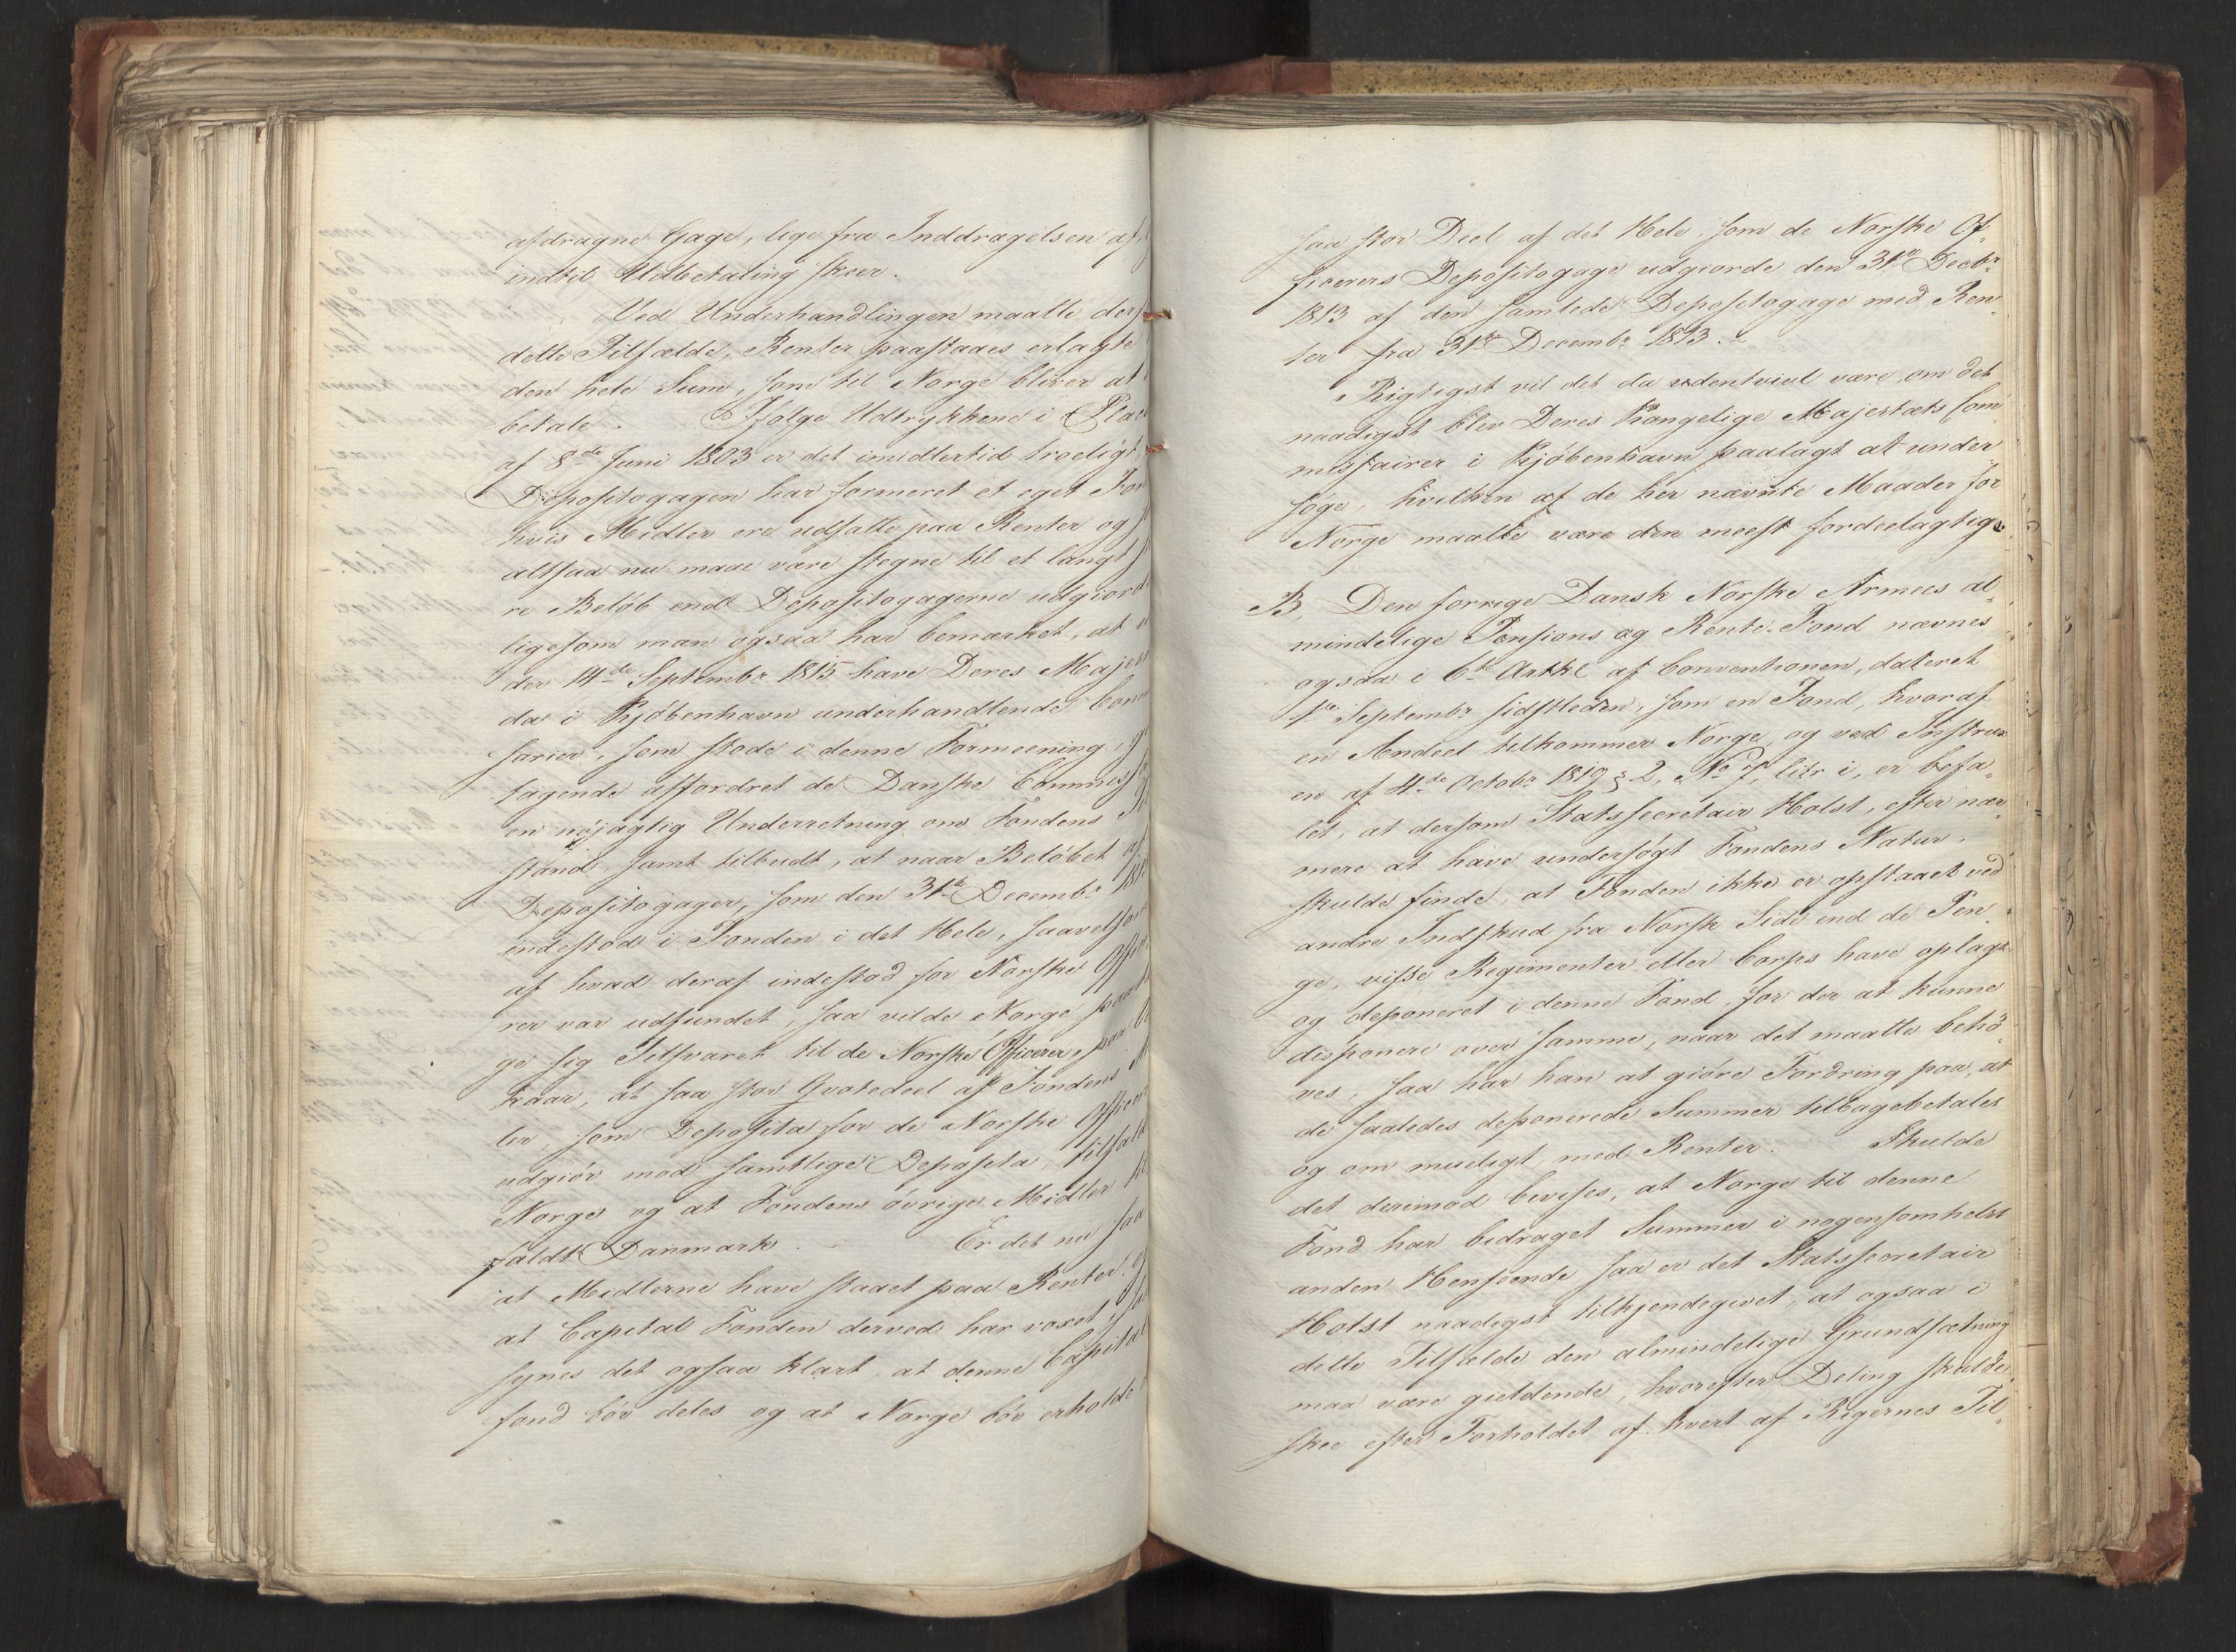 afdragne Gage, lige fra Inddragelsen af,
indtil Udbetaling skeer.
Ved Underhandlingen maatte der
dette Tilfælde, Renter paastaaes erlagte
den hele Sum, som til Norge bliver at
betale. Ifølge Udtrykkene i Plac
af 8de Juni 1803 er det imidlertid troeligt,
Depositogagen har formeret et eget Fon
hvis Midler ere udsatte paa Renter og
altsaa nu maae være stegne til et langt
re Beløb end Depositogagerne udgiorde
ligesom man ogsaa har bemærket, at
der 14de Septembr 1815 have Deres Majes
da i Kjøbenhavn underhandlende Com
sarier, som stode i denne Formeening,
tagende affordret de Danske Commiss
en nøjagtig Underretning om Fondens
stand samt tilbudt, at naar Beløbet af
Depositogager, som den 31te Decembr 181
indestod i Fonden i det Hele, saavelsom
af hvad deraf indestod for Norske Offi
rer var udfundet, saa vilde Norge paa
ge sig Tilsvaret til de Norske Officerer, paa
kaar, at saa stor Qvotedeel af Fondens
ler, som Deposita for de Norske Officer
udgiør mod samtlige Deposita, tilfaldt
Norge og at Fondens øvrige Midler
faldt Danmark. Er det nu saa
at Midlerne have staaet paa Renter og
at Capital Fonden derved har voxet,
synes det ogsaa klart, at denne Capital
fond bør deles og at Norge bør erholde
saa stor Deel af det Hele, som de Norske Of-
ficerers Depositogage udgiorde den 31te Decbr
1813 af den samlede Depositogage med Ren-
ter fra 31te Decembr 1813.
Rigtigst vil det da udentvivl være, om det
naadigst blev Deres Kongelige Majestæts Com
missairer i Kjøbenhavn paalagt at under-
søge, hvilken af de her nævnte Maader for
Norge maatte være den meest fordeelagtige.
B, Den forrige Dansk Norske Armees al-
mindelige Pensions og Rente-Fond nævnes
ogsaa i 6te Artkl af Conventionen, dateret
1te Septembr sidstleden, som en Fond, hvoraf
en Andeel tilkommer Norge, og ved Instrux
en af 4de Octobr 1819 § 2, No 7, litr i, er befa-
let, at dersom Statssecretair Holst, efter nær-
mere at have undersøgt Fondens Natur,
skulde finde, at Fonden ikke er opstaaet ved
andre Indskud fra Norsk Side end de Pen-
ge, visse Regimenter eller Corps have oplagt
og deponeret i denne Fond, for der at kunne
disponere over samme, naar det maatte behø-
ves, saa har han at giøre Fordring paa, at
de saaledes deponerede Summer tilbagebetales
og om mueligt med Renter. Skulde
det derimod bevises, at Norge til denne
Fond har bidraget Summer i nogensomhelst
anden Henseende, saa er det Statssecretair
Holst naadigst tilkjendegivet, at ogsaa i
dette Tilfælde den almindelige Grundsætning
maa være gieldende, hvorefter Deling skulde
skee efter Forholdet af hvert af Rigernes Til-